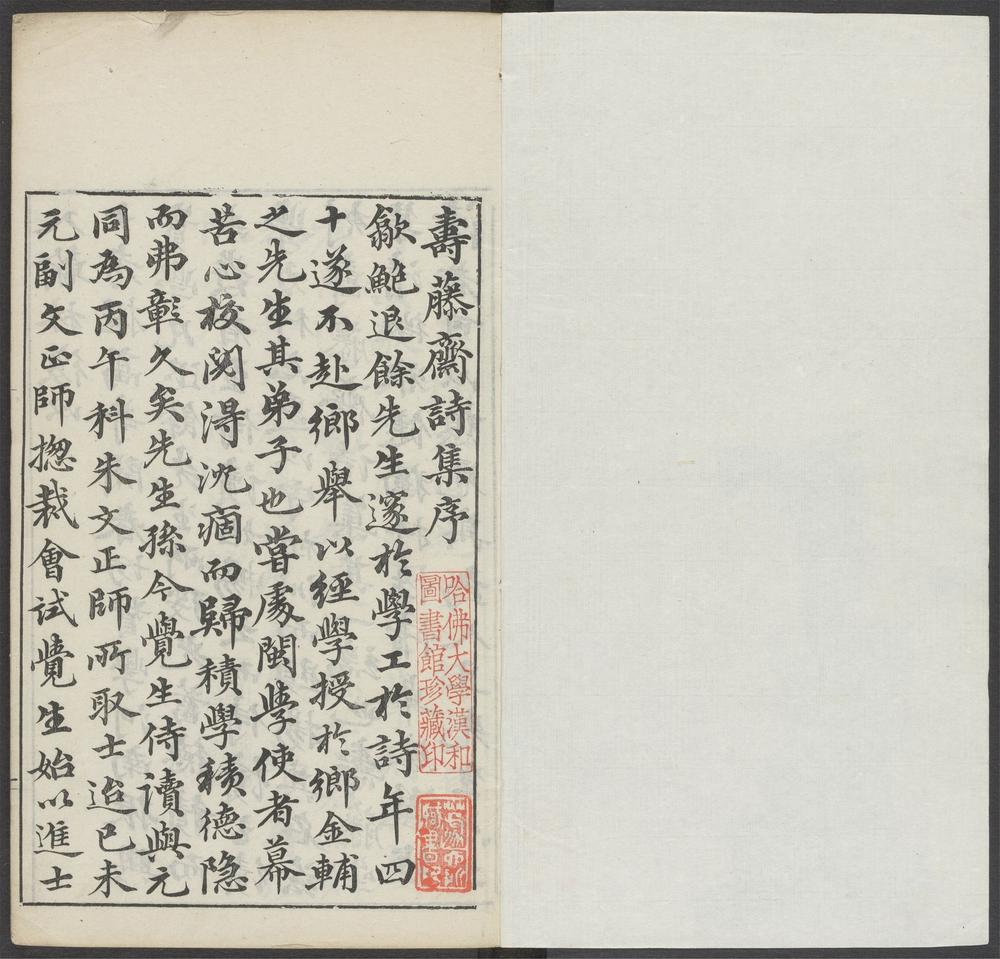 壽藤齋詩集序
歙鮑退餘先生邃於學工於詩年四
十遂不赴鄉舉以經學授於鄉金輔
之先生其弟子也嘗處閩學使者幕
苦心校閱得沈痼而歸積學積德隐
而弗彰久矣先生孫今覺生侍讀與元
同為丙午科朱文正師所取士迨己未
元副文正師揔裁會試覺生始以進士
哈佛大學漢和
圖書館珍藏印